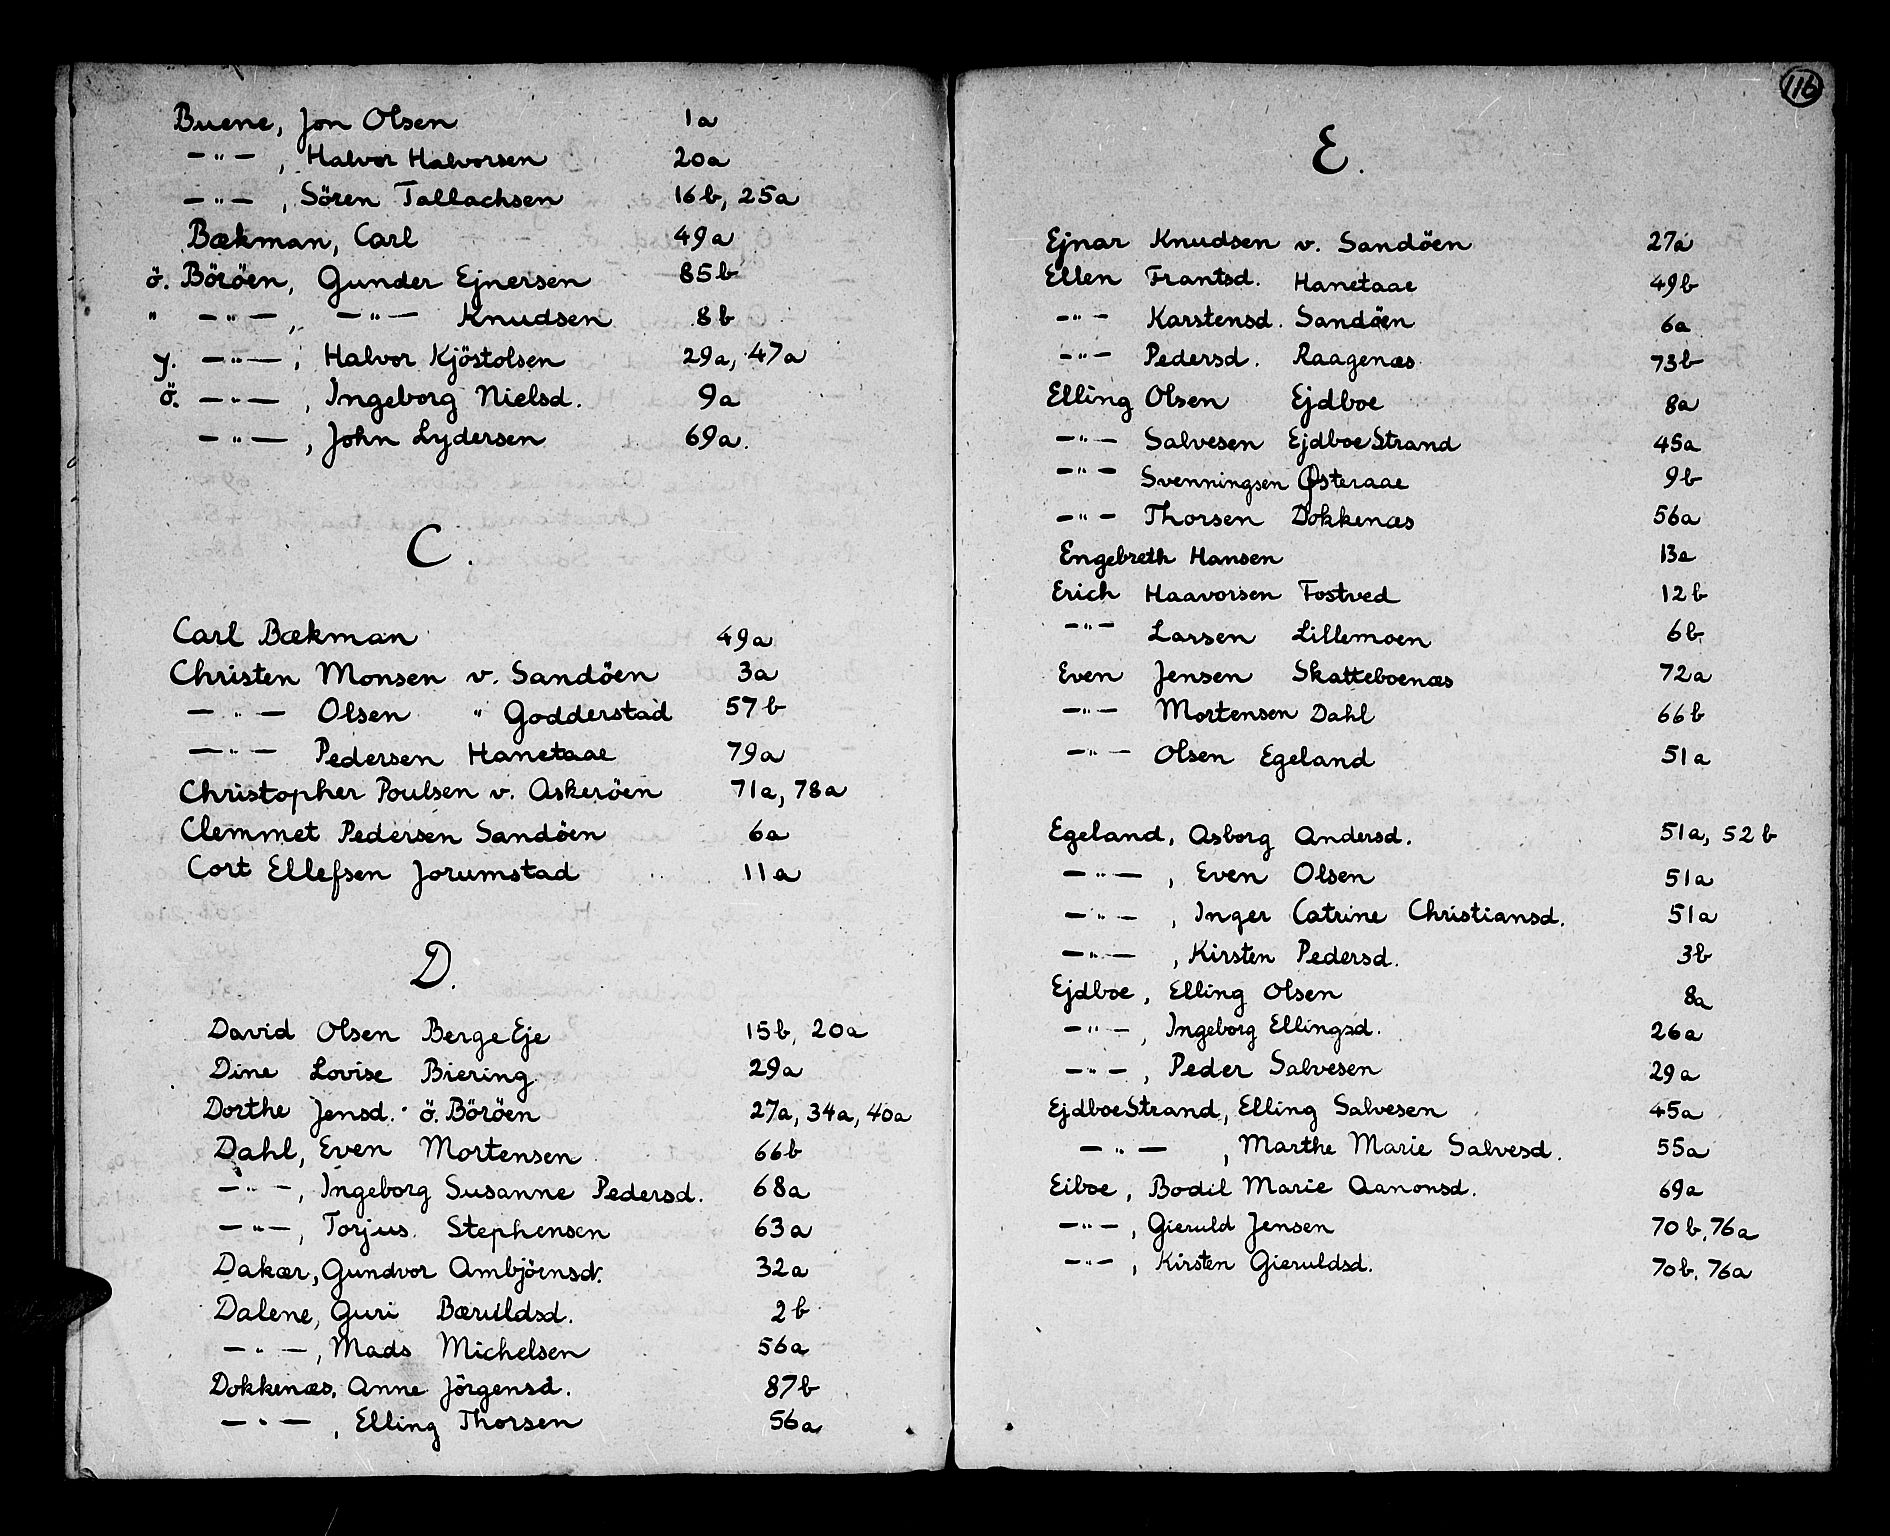 Buene, Jon Olsen 1a
— " — , Halvor Halvorsen 20a
— " — , Sören Tallachsen 16b, 25a
Bækman, Carl 49a
ö. Böröen, Gunder Ejnersen 85b
" — " — , — " — Knudsen 8b
y. — " — , Halvor Kjöstolsen 29a, 47a
ö. — " — , Ingeborg Nielsd. 9a
— " — , John Lydersen 69a.
C.
Carl Bækman 49a
Christen Monsen v. Sandöen 3a
— " — Olsen " Godderstad 57b
— " — Pedersen Hanetaae 79a
Christopher Poulsen v. Askeröen 71a, 78a
Clemmet Pedersen Sandöen 6a
Cort Ellefsen Jorumstad 11a
D.
David Olsen Berge Eje 15b, 20a
Dine Lovise Biering 29a
Dorthe Jensd. ö. Böröen 27a, 34a, 40a
Dahl, Even Mortensen 66b
— " — , Ingeborg Susanne Pedersd. 68a
— " — , Torjus Stephensen 63a
Dakær, Gundvor Ambjörnsd. 32a
Dalene, Guri Bæruldsd. 2b
— " — , Mads Michelsen 56a
Dokkenæs, Anne Jörgensd. 87b
— " — , Elling Thorsen 56a
116
E.
Ejnar Knudsen v. Sandöen 27a
Ellen Frantsd. Hanetaae 49b
— " — Karstensd. Sandöen 6a
— " — Pedersd. Raagenæs 73b
Elling Olsen Ejdboe 8a
— " — Salvesen EjdboeStrand 45a
— " — Svenningsen Østeraae 9b
— " — Thorsen Dokkenæs 56a
Engebreth Hansen 13a
Erich Haavorsen Fostved 12b
— " — Larsen Lillemoen 6b
Even Jensen Skatteboenæs 72a
— " — Mortensen Dahl 66b
— " — Olsen Egeland 51a
Egeland, Asborg Andersd. 51a, 52b
— " — , Even Olsen 51a
— " — , Inger Catrine Christiansd. 51a
— " — , Kirsten Pedersd. 3b
Ejdboe, Elling Olsen 8a
— " — , Ingeborg Ellingsd. 26a
— " — , Peder Salvesen 29a
EjdboeStrand, Elling Salvesen 45a
— " — , Marthe Marie Salvesd. 55a
Eiboe, Bodil Marie Aanonsd. 69a
— " — , Gieruld Jensen 70b, 76a
— " — , Kirsten Gieruldsd. 70b, 76a